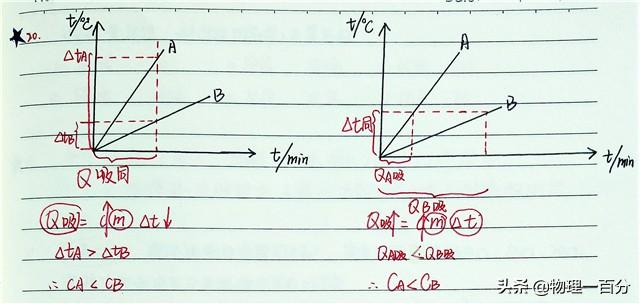 ★20.
t/℃
A
ΔtA
B
ΔtB
t/min
Q吸同
Q吸= c↑ m Δt↓
ΔtA > ΔtB
∴ CA < CB
t/℃
A
B
Δt同
t/min
QA吸
QB吸
Q吸↑= c↑ m Δt
QA吸 < QB吸
∴ CA < CB
头条@物理一百分